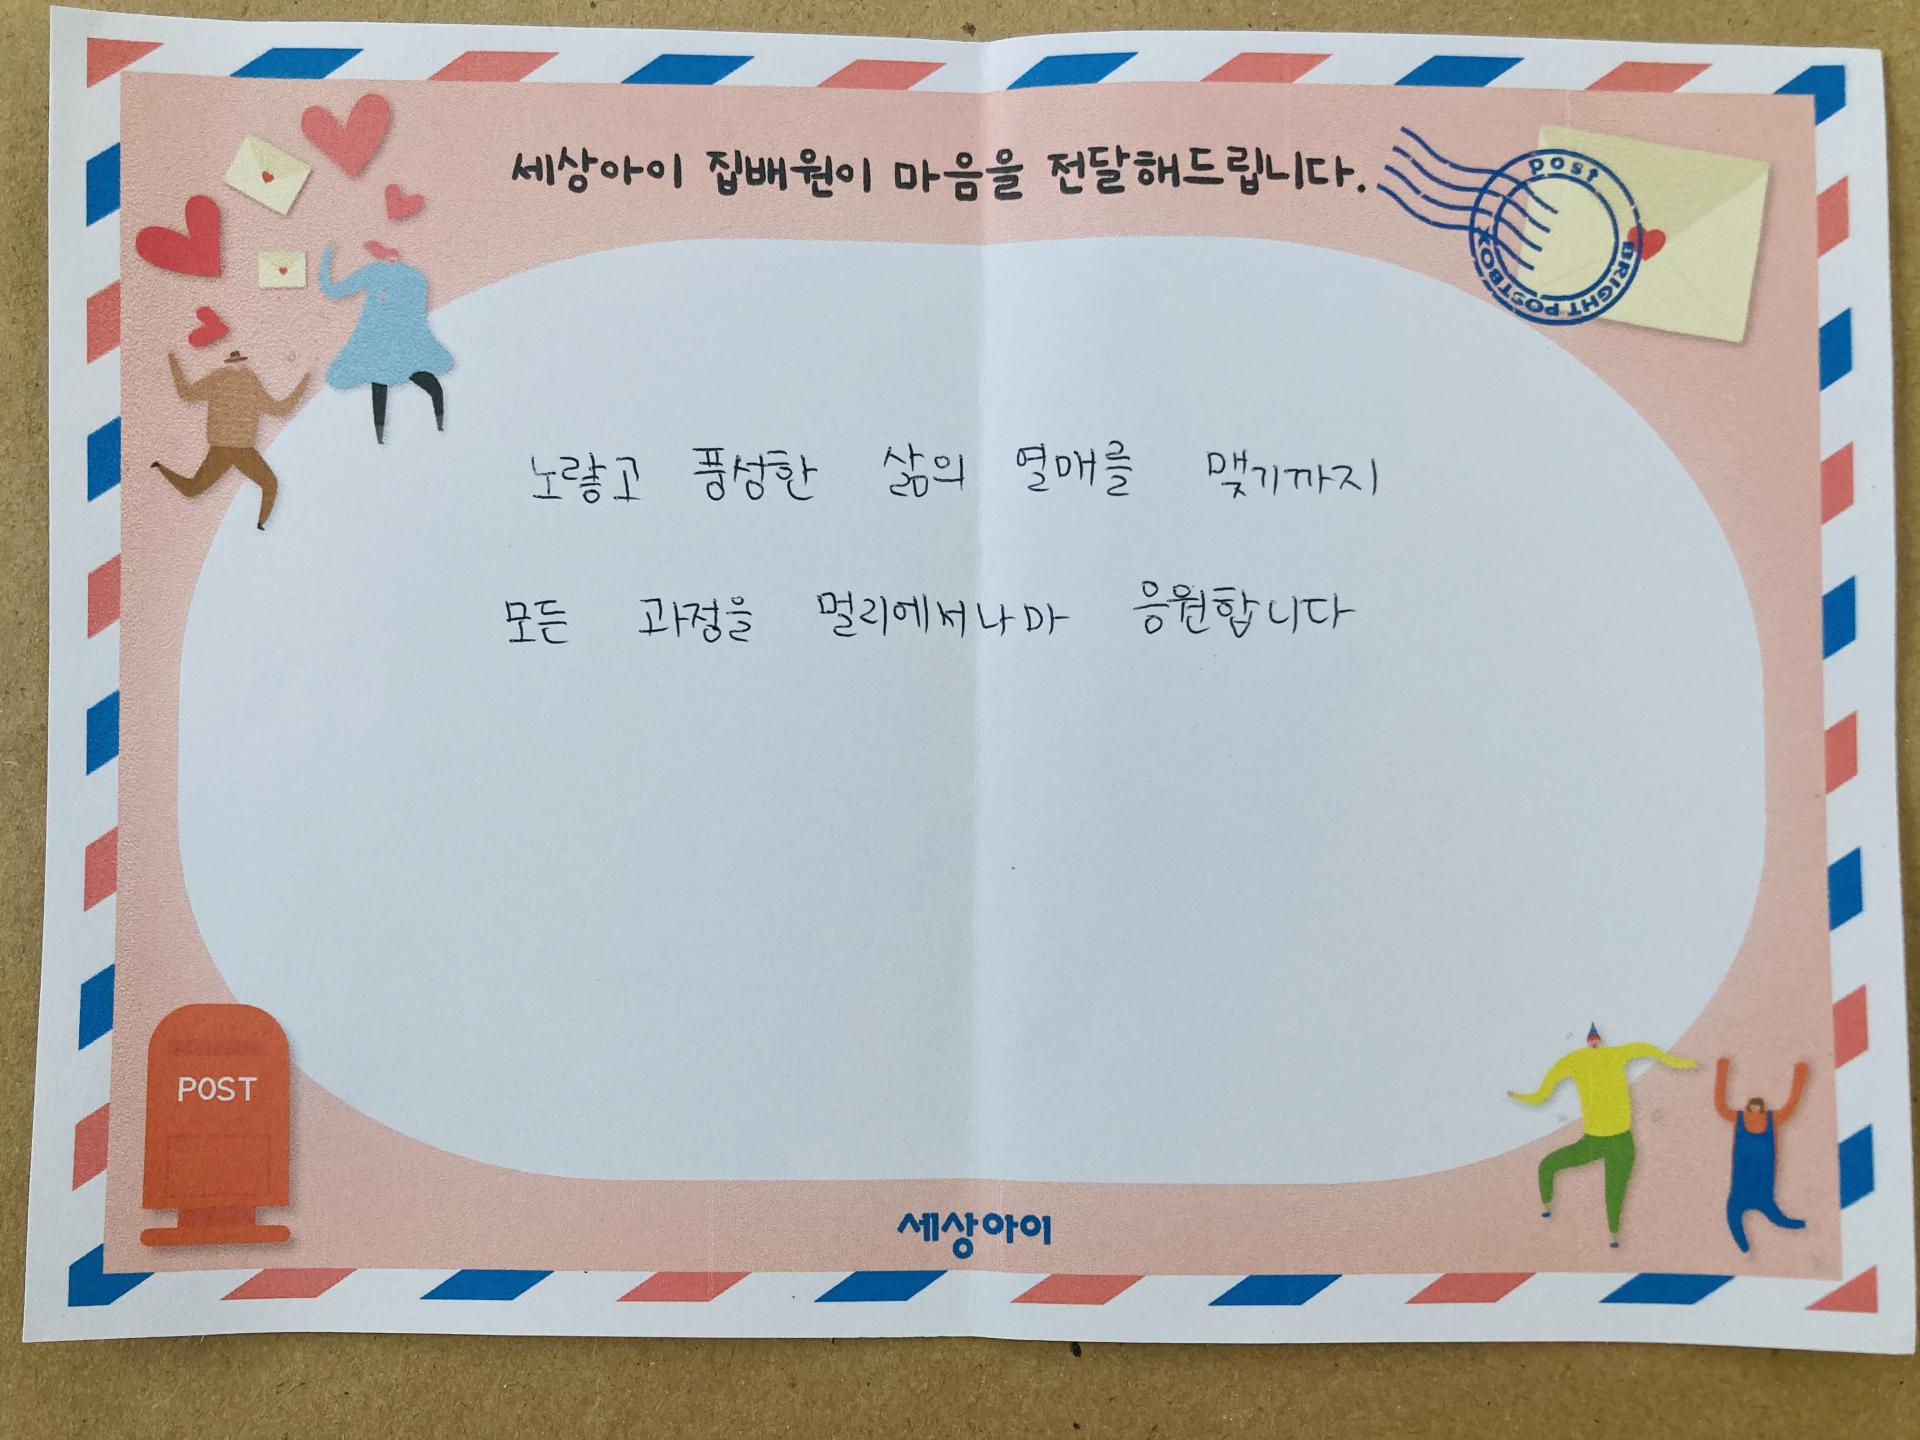 세상아이 집배원이 마음을 전달해드립니다.
POST
BRIGHT POSTBOX
노랗고 풍성한 삶의 열매를 맺기까지
모든 과정을 멀리에서나마 응원합니다
POST
세상아이